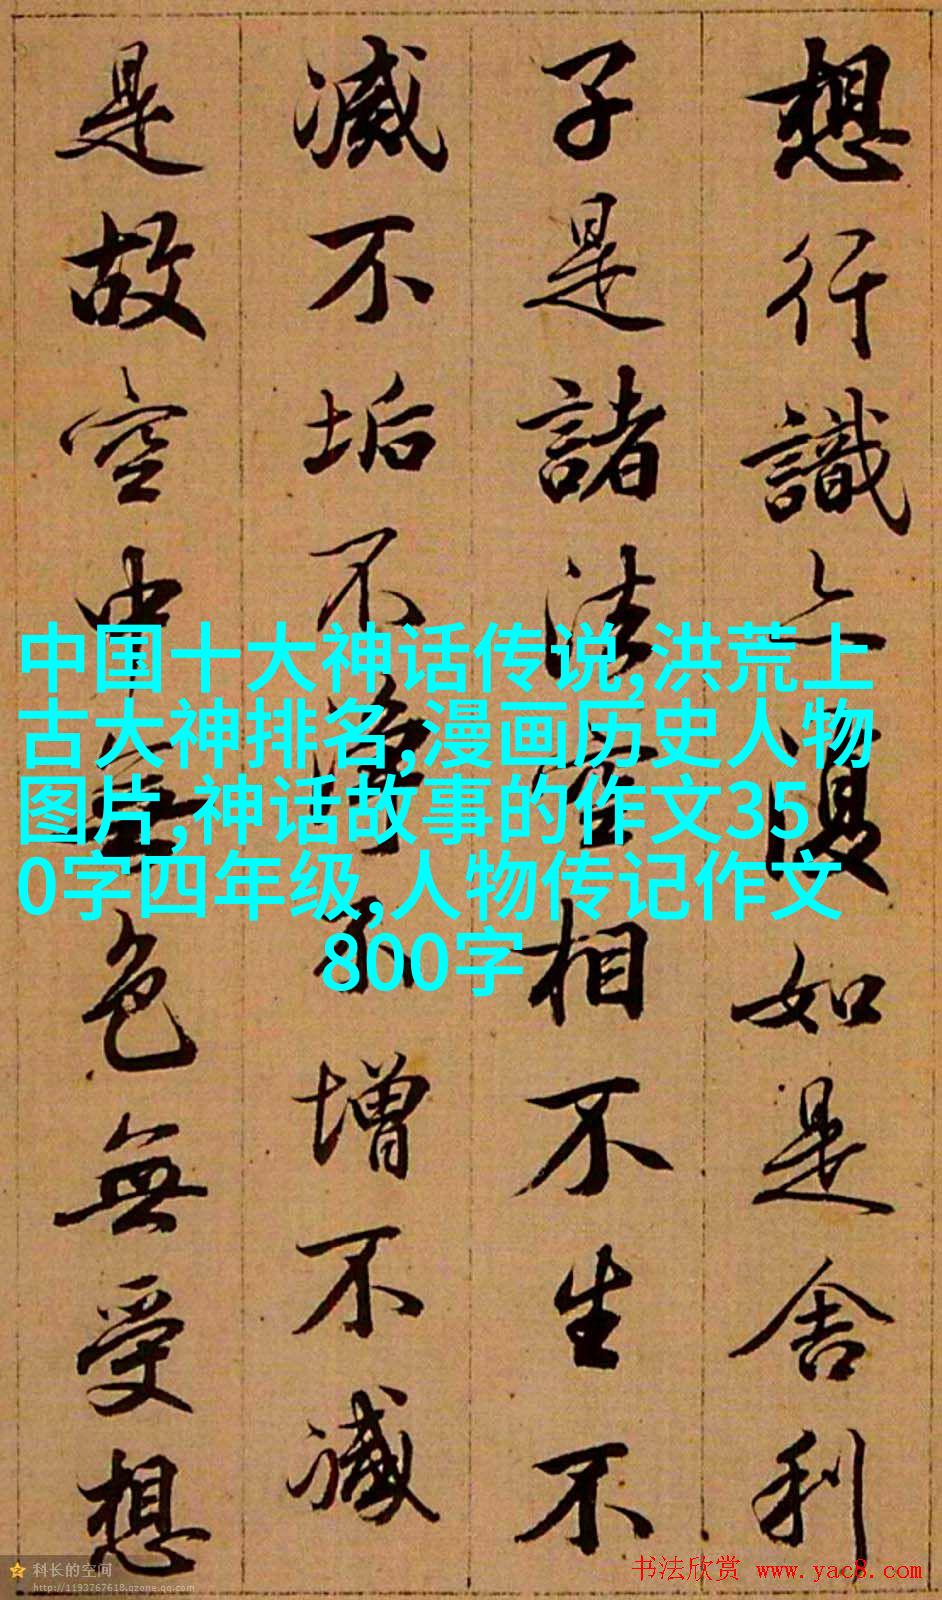 想行識亦復如是舍利
子是諸法空相不生不
滅不垢不淨不增不減
是故空中無色無受想
中国十大神话传说,洪荒上
古大神排名,漫画历史人物
图片,神话故事的作文35
0字四年级,人物传记作文
800字
科长的空间
http://1193767618.qzone.qq.com
书法欣赏 www.yac8.com